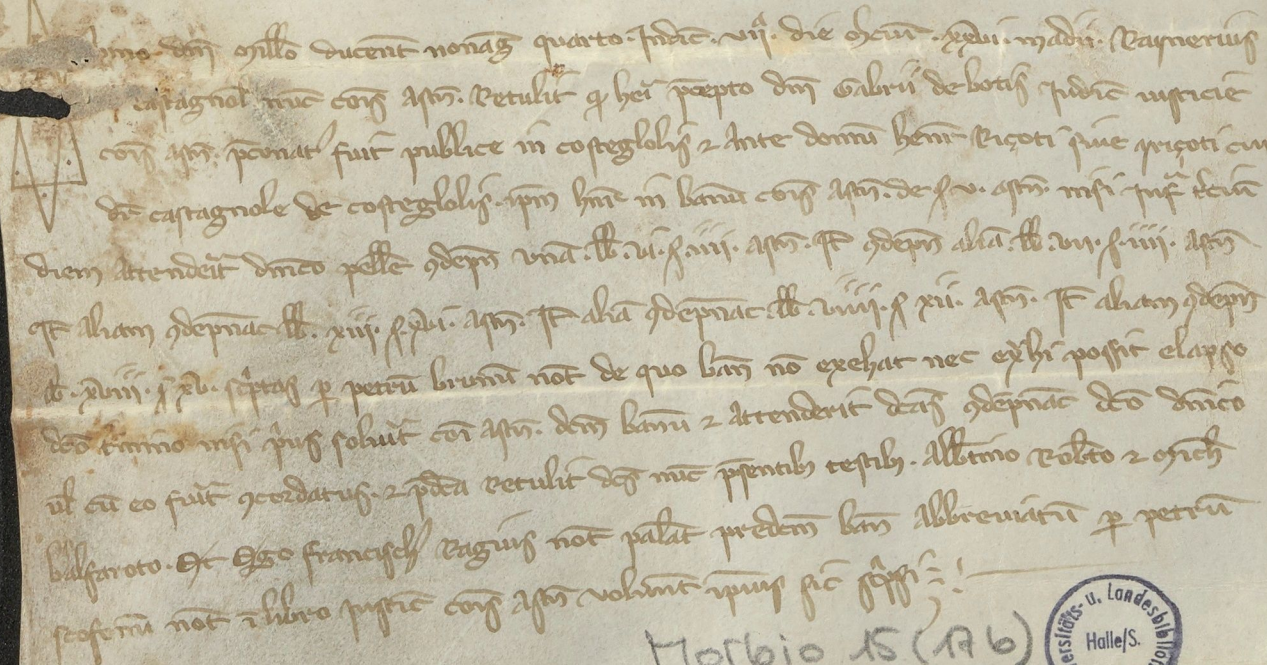 Anno dnī Millo ducent nonag quarto Indic. vii. die mcur. xxvi. madii. Raynerius
castagnol nunc cōis Astn. Retulit qd heri p̄cepto dnī Gabrii de botis Iudic iusticie
cōis astn. p̄conat fuit publice in costeglolis & ante domū henr Riçoti siue priçoti
de castagnole de costeglolis. ipm hnr in banū cōis Astn. de s. v. astn. nisi infra t̄ciū
diem attenderit dnīco pellet 9depn unā. lb. vi. s. iiii. astn. It 9depn aliā lb. vii. s. iiii. astn
It aliam 9depnac lb. xiii. s. xvi. astn. It aliā 9depnac lb. viiii. s xii. astn. It aliam 9depn
lb. xviii. s xv. sc̄ptas p petrū brunū not de quo ban nō exehat nec ex̄hi possit elapso
dc̄o t̄mino nisi p̄us soluit cōi astn. dcm banū & attenderit dcas 9depnac dco dnīco
ul cū eo fuit 9cordatus. & p̄dca Retulit dcs nunc p̄sentib testib. Albtino Robto & Mich
balfaroto. Et Ego francisch Ragius not palat predcm ban Abbreviatū p petrū
not ī libro Iustic cōis Astn volunt ipius sic sc̄psi
Morbio 15 (17b)
Universitäts- u. Landesbibliothek
Halle/S.